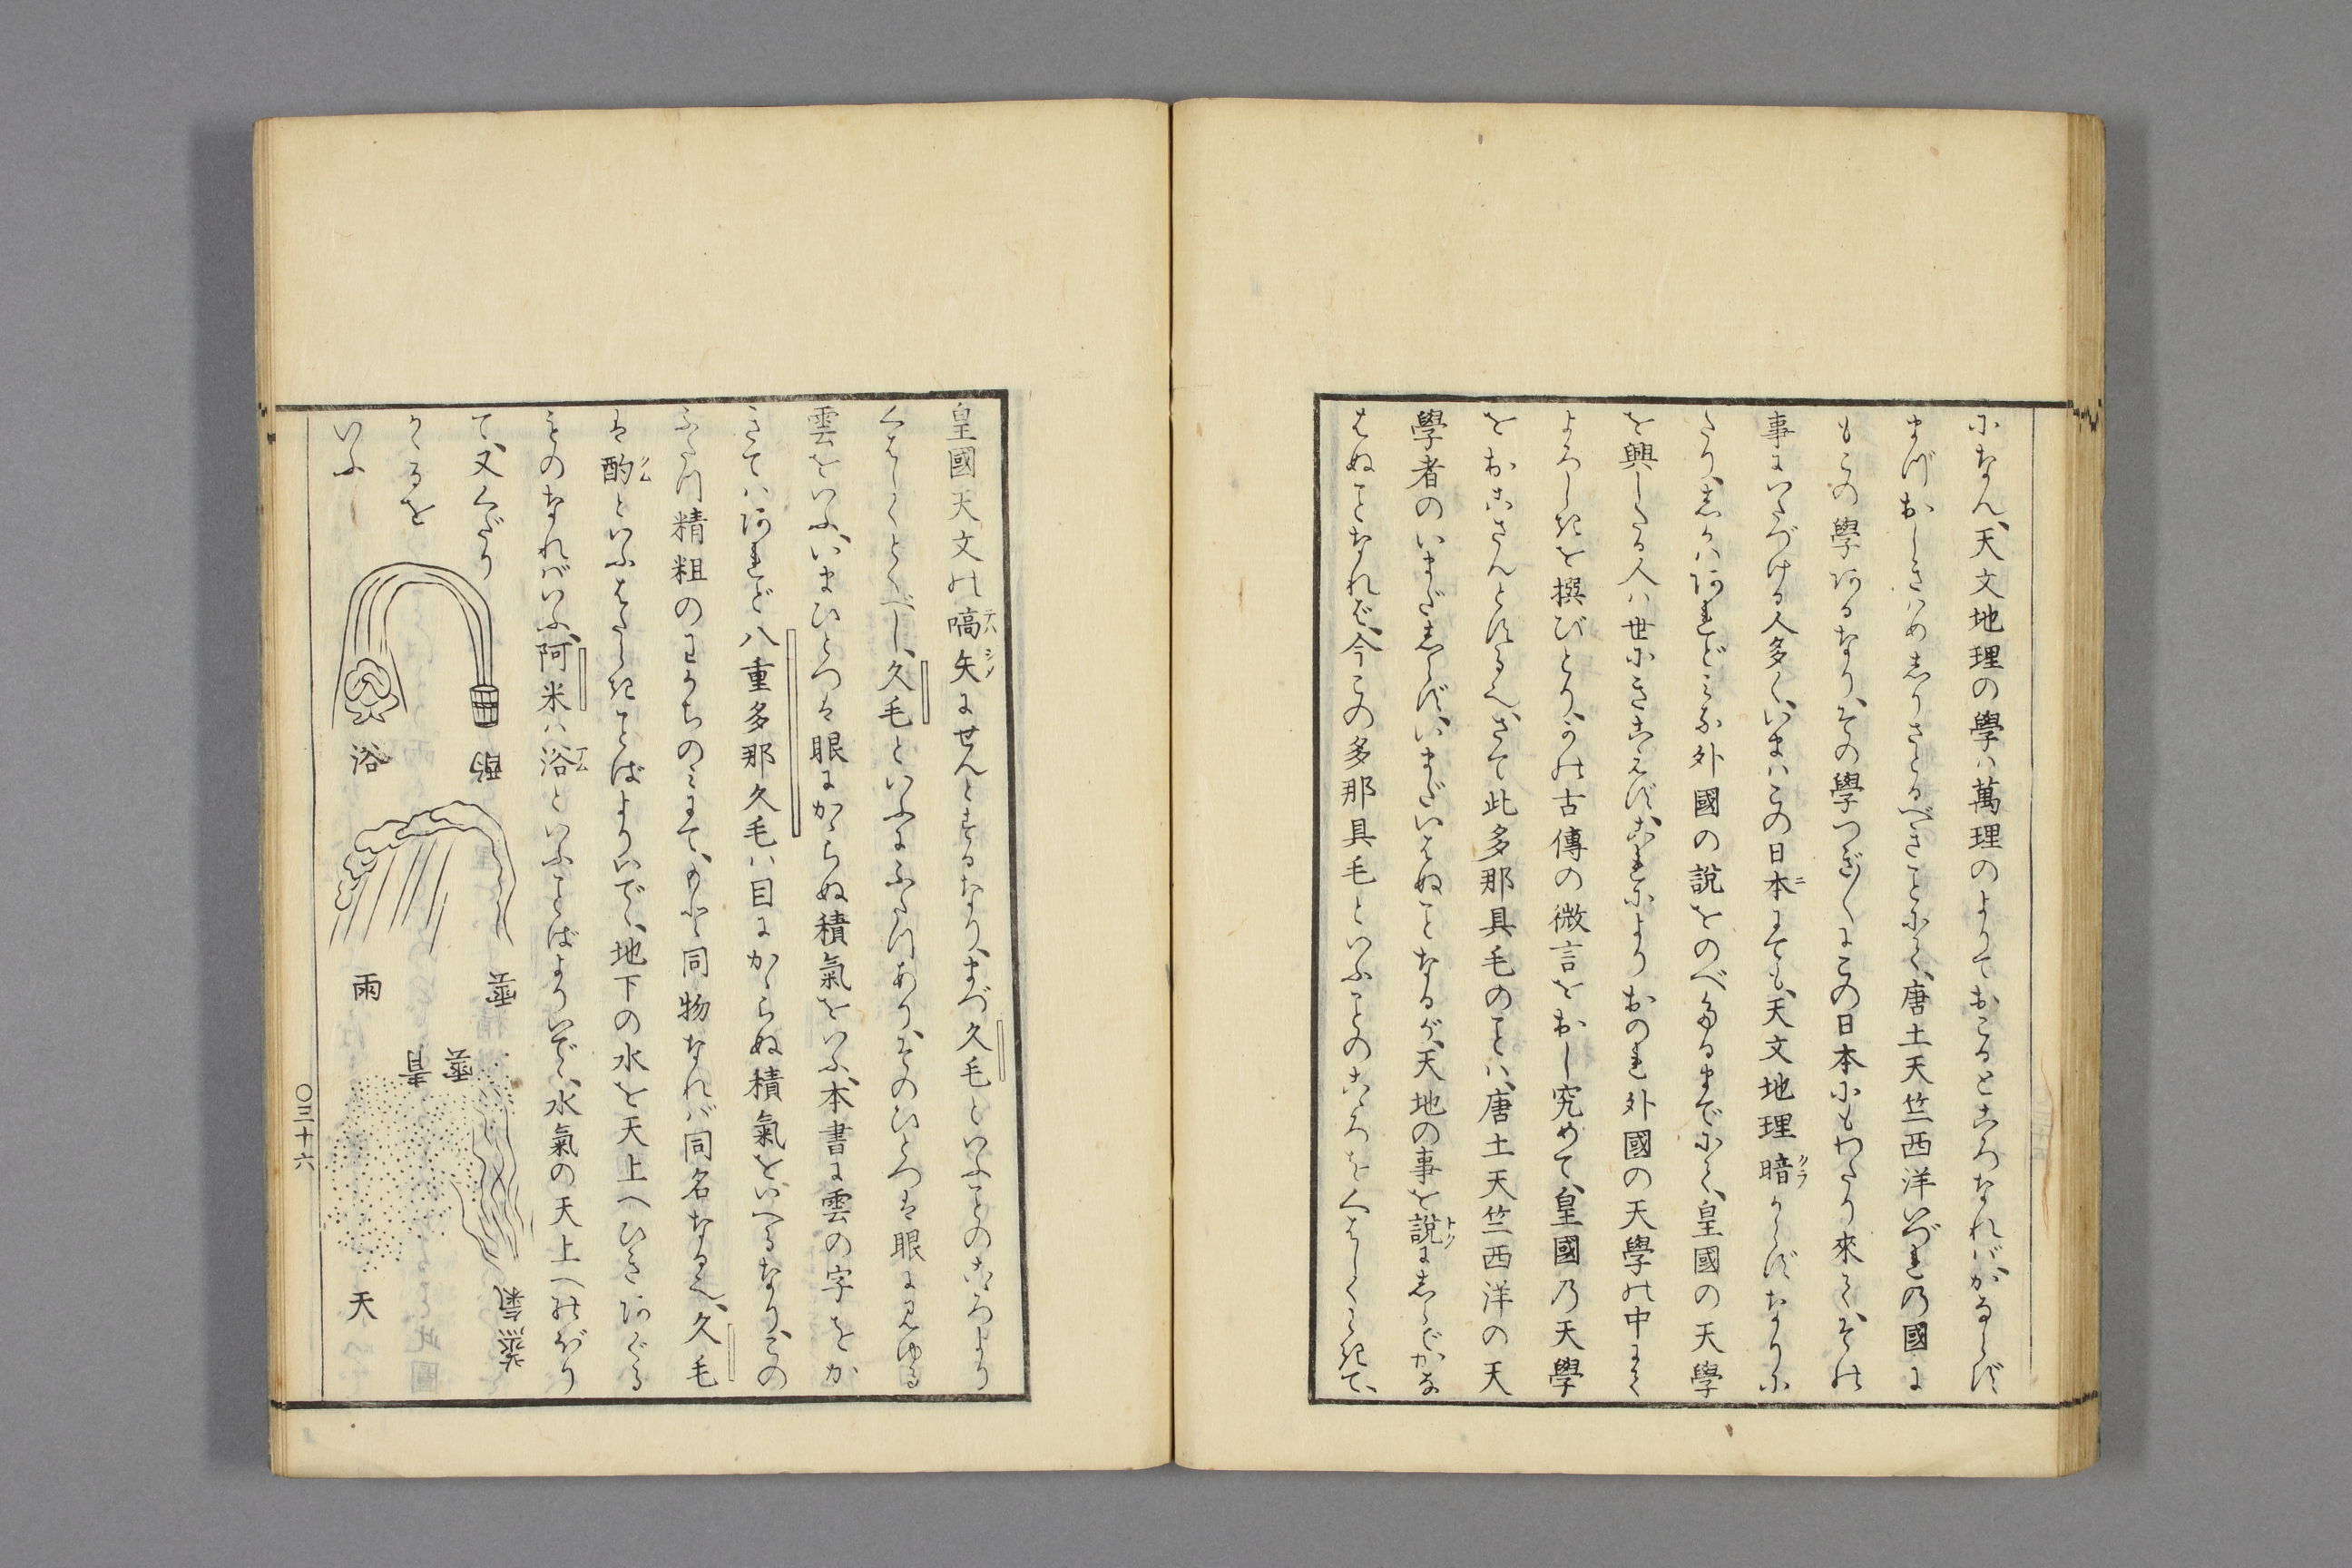 になん、天文地理の學ハ萬理のよりておこるところなれバ、かならず
まづおしきハめしりさとるべきことにて、唐土天竺西洋いづれの國に
もこの學あるなり、その學つぎ〳〵にこの日本にもわたり來て、その
事にいたづける人多く、いまハこの日本にても、天文地理暗からずなりに
たり、しかハあれどミな外國の說をのべたるまでにて、皇國の天學
を興したる人ハ世にきこえず、これによりおのれ外國の天學の中にて
よろしきを撰びとり、かの古傳の微言をおし究めて、皇國乃天學
をおこさんとするへ、さて此多那具毛のことハ、唐土天竺西洋の天
學者のいまだしらず、いまだいはぬことなるが、天地の事を說にしらでかな
はぬことなれば、今この多那具毛といふことのこゝろをくはしくときて、
皇國天文の嚆矢にせんとするなり、まづ久毛といふことのこゝろより
くはしくとくべし、久毛といふにふたつあり、そのひとつは眼に見ゆる
雲をいふ、いまひとつは眼にかゝらぬ積氣をいふ、本書に雲の字をか
きてハあれど八重多那久毛ハ目にかゝらぬ積氣をいへるなり、この
ふたつ精粗のわかちのミにて、もと同物なれバ同名なるへ、久毛
は酌といふはたらきことばよりいでゝ、地下の水を天上へひきあぐる
ものなれバいふ、阿米ハ浴といふことばよりいでゝ、水氣の天上へのぼり
て、又くだり
かゝるを
いふ
浴
雨
天
〇三十六